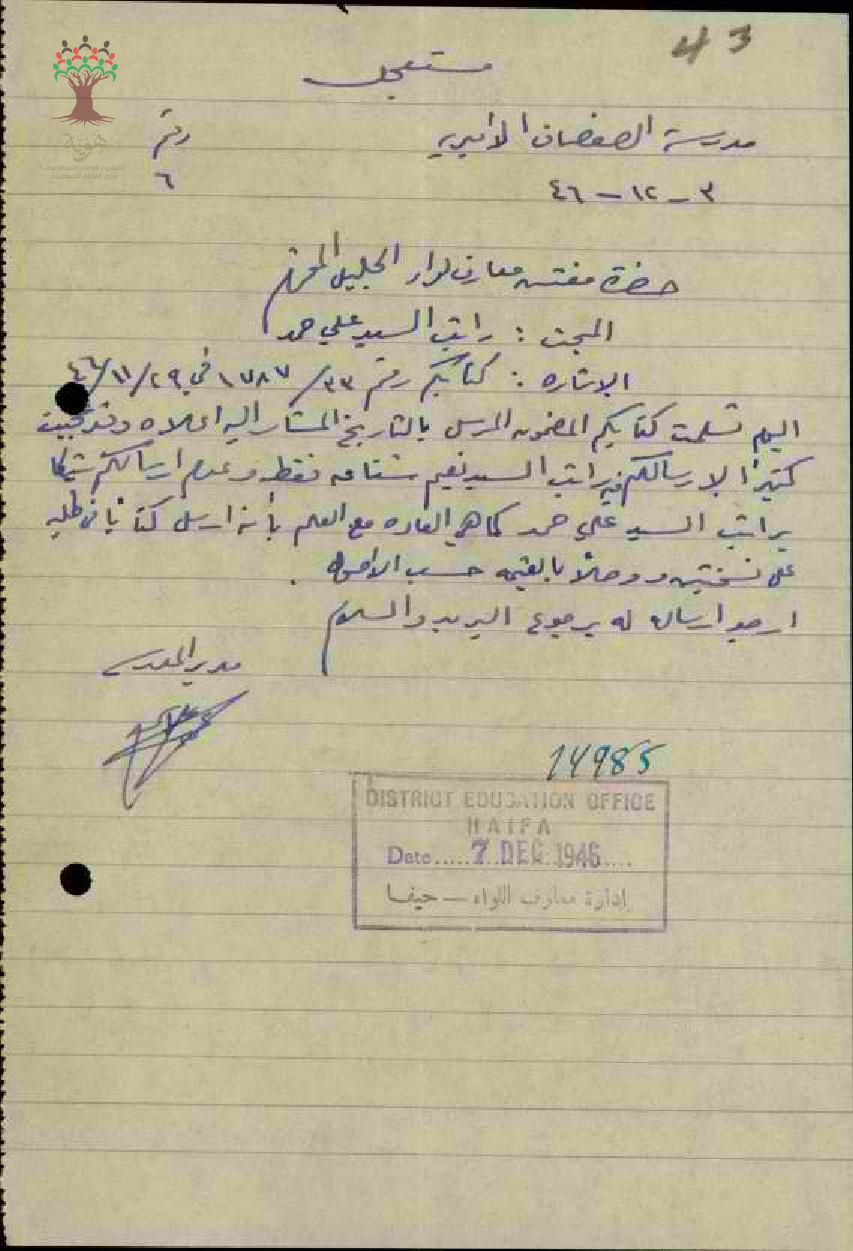 43
مستعجل
مدرسة الصفصاف الاميرية
رقم
٦
٣ - ١٢ - ٤٦
هوية
حضرة مفتش معارف لواء الجليل المحترم
المبحث : راتب السيد علي حمد
الاشاره : كتابكم رقم ٣٣/ ١٧٨٧ في ٢٩/١١/٤٦
اليوم تسلمت كتابكم المضمون المرسل بالتاريخ المشار اليه اعلاه وقد عجبت
كثيرا لارسالكم فيه راتب السيد نعيم فقط وعدم ارسالكم شيكا
براتب السيد علي حمد كما هي العاده مع العلم بأنه ارسل كتابا في طلبه
على نسختين ووصلا بالقيمه حسب الاصول .
ارجو ارساله له برجوع البريد والسلام
مدير المدرسة
14985
DISTRICT EDUCATION OFFICE
HAIFA
Date.....7 DEC 1946....
إدارة معارف اللواء — حيفا